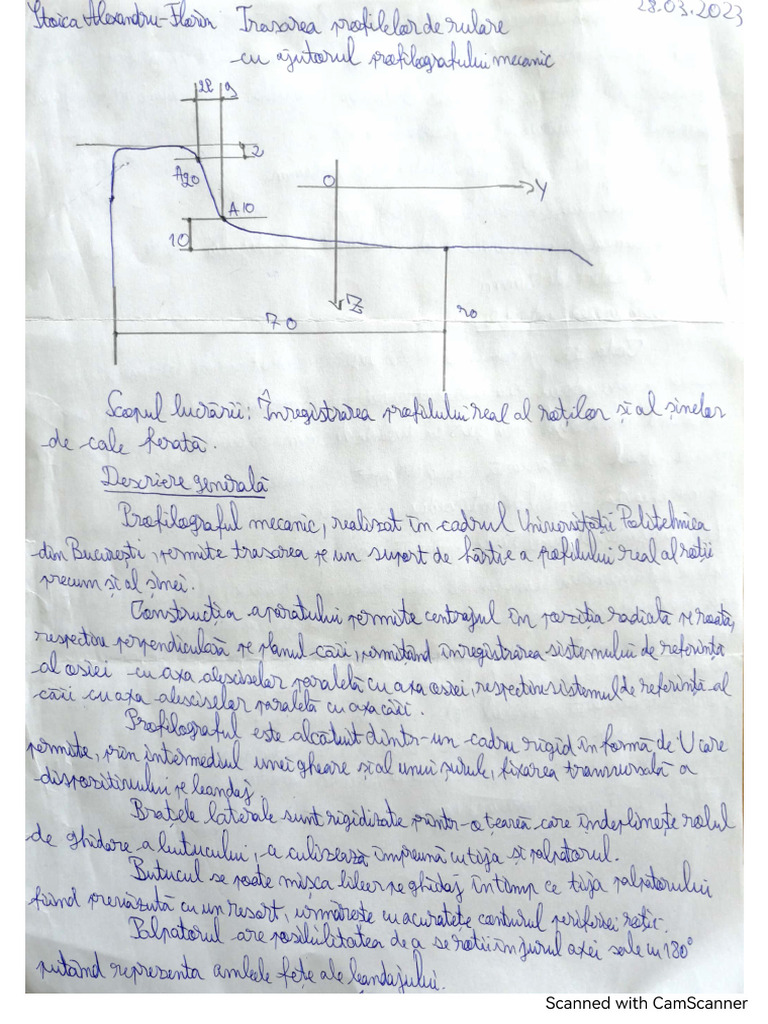 Stoica Alexandru-Florin Trasarea profilelor de rulare 28.03.2023
cu ajutorul profilografului mecanic
2
A20
O
Y
A10
10
Z
70
r0
Scopul lucrării: Înregistrarea profilului real al roților și al șinelor
de cale ferată.
Descriere generală
Profilograful mecanic, realizat în cadrul Universității Politehnica
din București, permite trasarea pe un suport de hârtie a profilului real al roții
precum și al șinei.
Construcția aparatului permite centrajul în poziția radiată pe roată,
respectiv perpendiculară pe planul căii, permitând înregistrarea sistemului de referință
al osiei cu axa absciselor paralelă cu axa osiei, respectiv sistemul de referință al
căii cu axa absciselor paralelă cu axa căii.
Profilograful este alcătuit dintr-un cadru rigid în formă de U care
permite, prin intermediul unei gheare și al unui șurub, fixarea transversală a
dispozitivului pe bandaj.
Brațele laterale sunt rigidizate printr-o țeavă care îndeplinește rolul
de ghidare a butucului, ce culisează împreună cu tija și palpatorul.
Butucul se poate mișca liber pe ghidaj în timp ce tija palpatorului
fiind prevăzută cu un resort, urmărește cu acuratețe conturul periferiei roții.
Palpatorul are posibilitatea de a se roti în jurul axei sale cu 180°
putând reprezenta ambele fețe ale bandajului.
Scanned with CamScanner